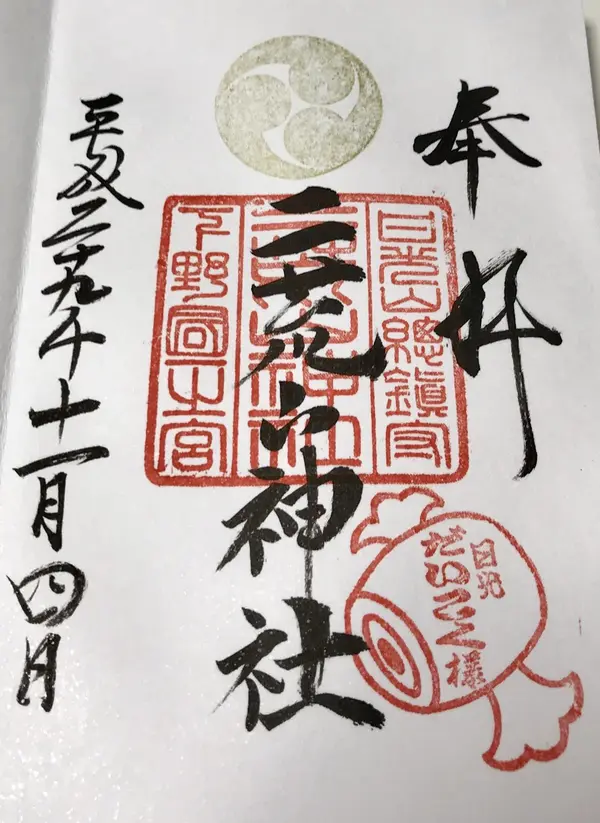 奉拝
日光山總鎮守
二荒山神社
下野國一之宮
二荒山神社
日光
だいこく様
平成二十九年十一月四日